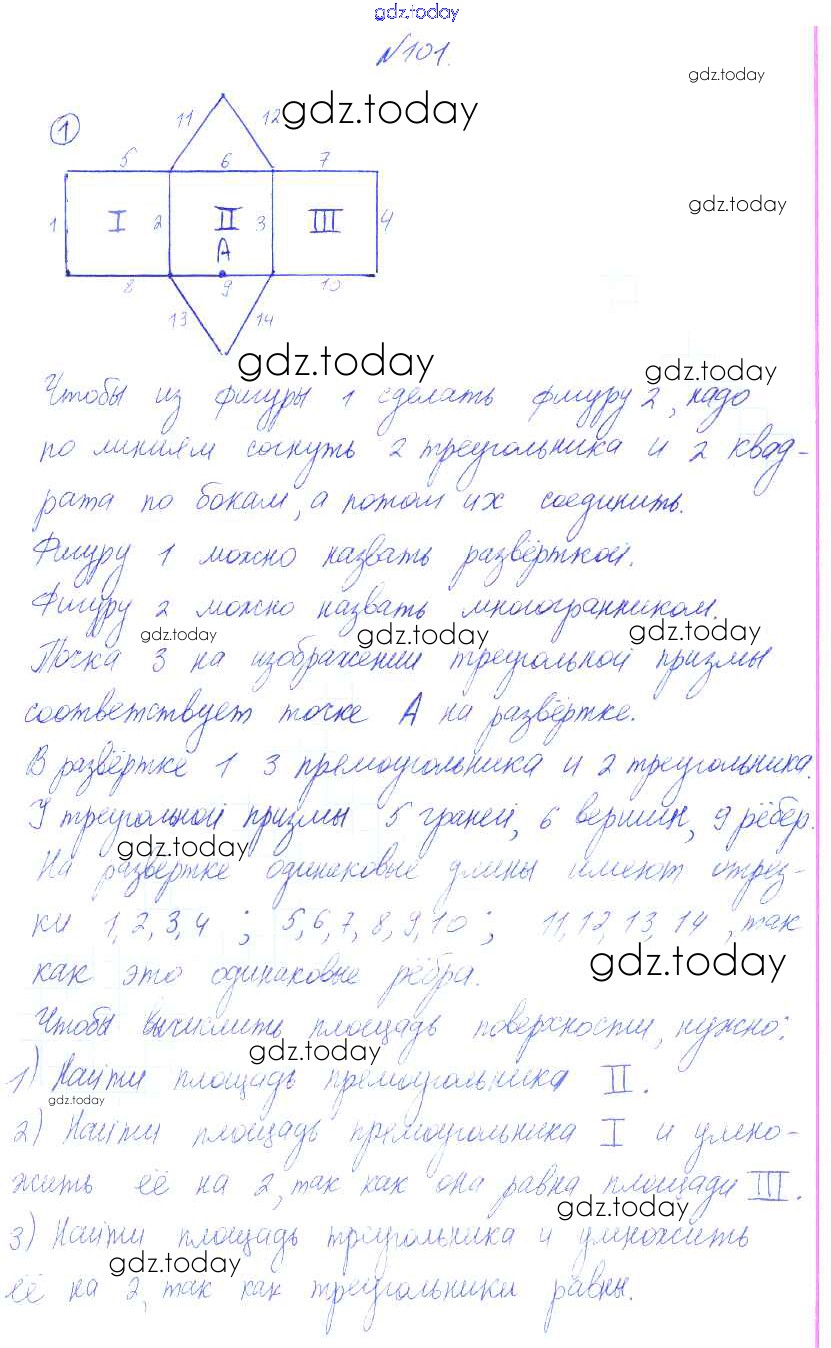 gdz.today
№101.
gdz.today
11 12 gdz.today
1
5 6 7
gdz.today
1 I 2 II 3 III 4
A
8 9 10
13 14
gdz.today
gdz.today
Чтобы из фигуры 1 сделать фигуру 2, надо
по линиям согнуть 2 треугольника и 2 квад-
рата по бокам, а потом их соединить.
Фигуру 1 можно назвать развёрткой.
Фигуру 2 можно назвать многогранником.
gdz.today gdz.today gdz.today
Точка 3 на изображении треугольной призмы
соответствует точке А на развёртке.
В развёртке 1 3 прямоугольника и 2 треугольника.
У треугольной призмы 5 граней, 6 вершин, 9 рёбер.
gdz.today
На развёртке одинаковые длины имеют отрез-
ки 1, 2, 3, 4 ; 5, 6, 7, 8, 9, 10 ; 11, 12, 13, 14 , так
gdz.today
как это одинаковые рёбра.
Чтобы вычислить площадь поверхности, нужно:
gdz.today
1) Найти площадь прямоугольника II.
gdz.today
2) Найти площадь прямоугольника I и умно-
жить её на 2, так как она равна площади III.
gdz.today
3) Найти площадь треугольника и умножить
gdz.today
её на 2, так как треугольники равны.